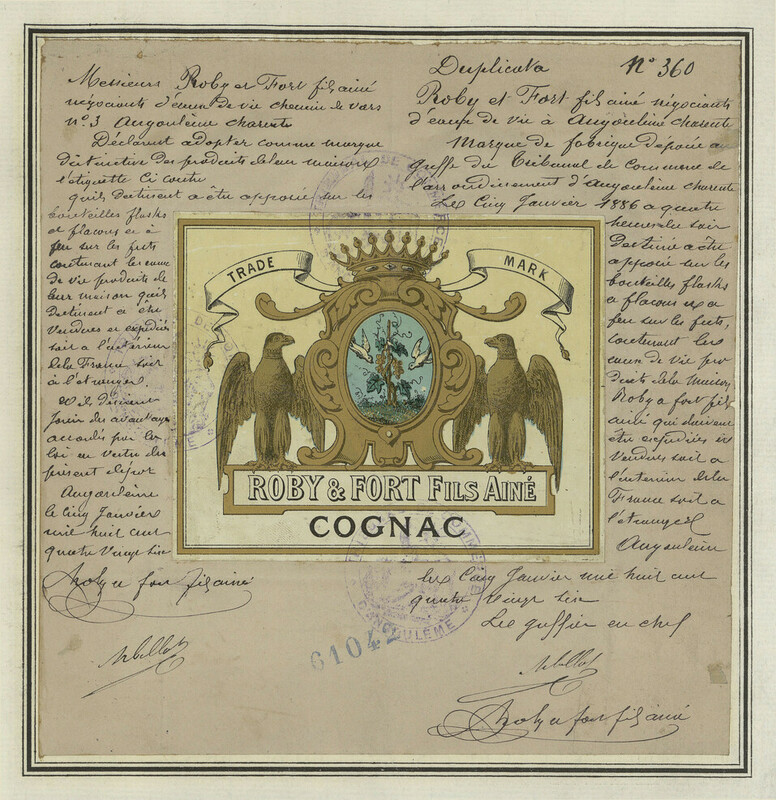 Messieurs Roby et Fort fils ainé
négociants d'eaux de vie chemin de vars
n° 3 Angoulême charente
Déclarent adopter comme marque
distinctive des produits de leur maison
l'étiquette Ci contre
qu'ils destinent a être apposée sur les
bouteilles flasks
et flacons et à
feu sur les futs
contenant les eaux
de vie produits de
leur maison qu'ils
destinent a être
vendues et expediés
soit a l'intérieur
de la France soit
à l'étranger.
et désirent
Jouir des avantages
accordés par la
loi en vertu du
présent depot
Angoulême
le Cinq Janvier
mil huit cent
quatre vingt six
Roby et fort fils ainé
Duplicata N° 360
Roby et Fort fils ainé négociants
d'eaux de vie à Angoulême charente
Marque de fabrique déposée au
greffe du Tribunal de Commerce de
l'arrondissement d'Angoulême charente
Le Cinq Janvier 1886 a quatre
heures du soir
Destinée a être
apposée sur les
bouteilles flasks
a flacons et a
feu sur les futs,
contenant les
eaux de vie pro
duits de la maison
Roby a fort fils
ainé qui doivent
être expediées et
vendues soit a
l'interieur de la
France soit a
l'étranger
Angoulême
le Cinq Janvier mil huit cent
quatre vingt six
Le greffier en chef
Roby et fort fils ainé
TRADE MARK
ROBY & FORT FILS AINÉ
COGNAC
D'ANGOULEME
61042